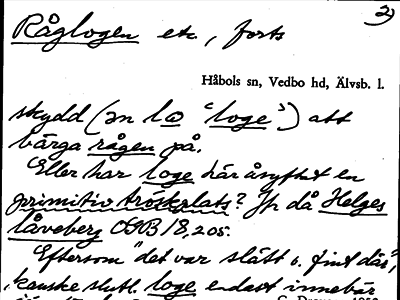 2)
Råglogen etc, forts
Håbols sn, Vedbo hd, Älvsb. l.
skydd (än la "loge"!) att
bärga rågen på.
Eller har loge här åsyftat en
primitiv tröskplats? Jfr då Helges
låveberg OGB 18, 205.
Eftersom "det var slätt o. fint där",
kanske slutl. loge endast innebär